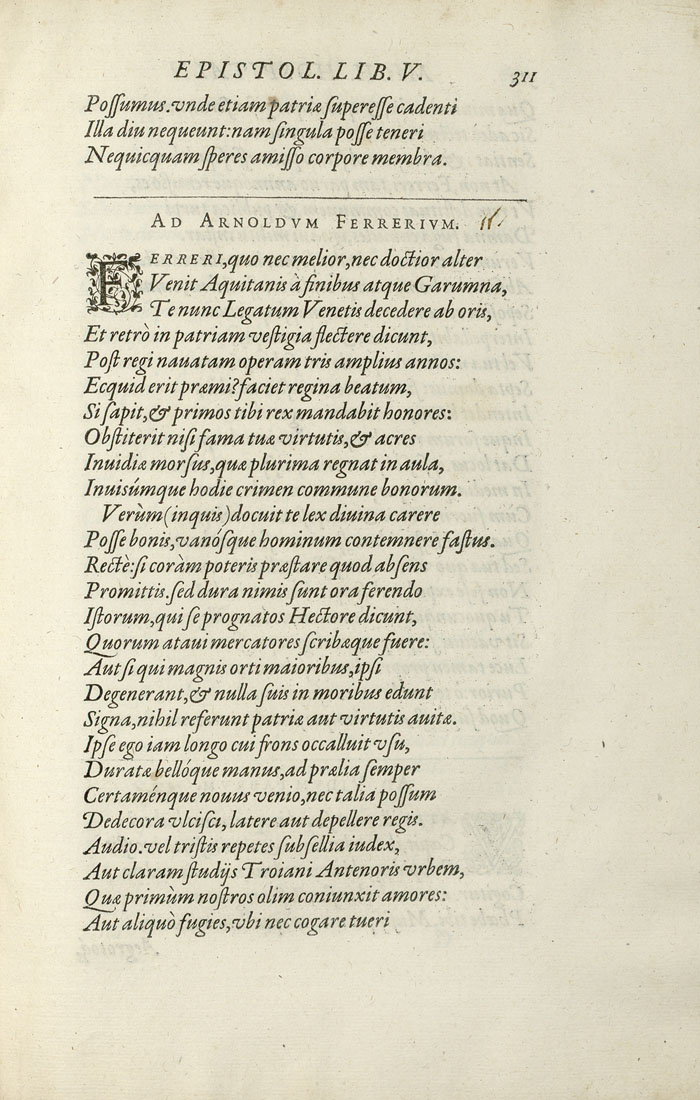 EPISTOL. LIB. V. 311
Possumus.vnde etiam patriæ superesse cadenti
Illa diu nequeunt:nam singula posse teneri
Nequicquam speres amisso corpore membra.
AD ARNOLDVM FERRERIVM.
FERRERI,quo nec melior,nec doctior alter
Venit Aquitanis à finibus atque Garumna,
Te nunc Legatum Venetis decedere ab oris,
Et retrò in patriam vestigia flectere dicunt,
Post regi nauatam operam tris amplius annos:
Ecquid erit præmi?faciet regina beatum,
Si sapit,& primos tibi rex mandabit honores:
Obstiterit nisi fama tuæ virtutis,& acres
Inuidiæ morsus,quæ plurima regnat in aula,
Inuisúmque hodie crimen commune bonorum.
Verùm(inquis)docuit te lex diuina carere
Posse bonis,vanósque hominum contemnere fastus.
Rectè:si coràm poteris præstare quod absens
Promittis.sed dura nimis sunt ora ferendo
Istorum,qui se prognatos Hectore dicunt,
Quorum ataui mercatores scribæque fuere:
Aut si qui magnis orti maioribus,ipsi
Degenerant,& nulla suis in moribus edunt
Signa,nihil referunt patriæ aut virtutis auitæ.
Ipse ego iam longo cui frons occalluit vsu,
Duratæ bellóque manus,ad prælia semper
Certaménque nouus venio,nec talia possum
Dedecora vlcisci,latere aut depellere regis.
Audio.vel tristis repetes subsellia iudex,
Aut claram studijs Troiani Antenoris vrbem,
Quæ primùm nostros olim coniunxit amores:
Aut aliquò fugies,vbi nec cogare tueri